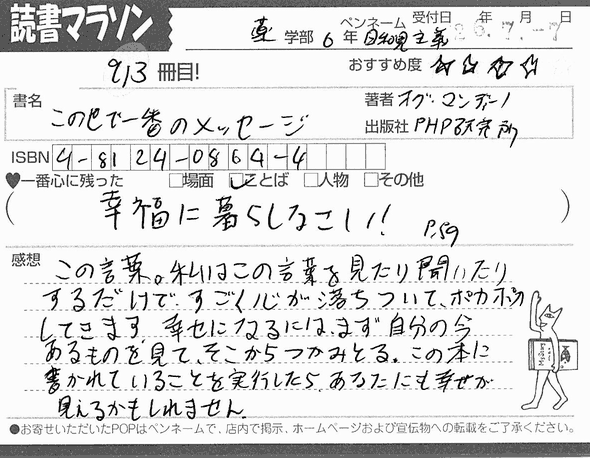 読書マラソン
薬 学部 6 年 ペンネーム 自和見主義 受付日 年 月 日
26.7.-7
913 冊目! おすすめ度 ☆☆☆☆
書名 この世で一番のメッセージ
著者 オグ・マンディーノ
出版社 PHP研究所
ISBN 4-8124-0864-4
♥一番心に残った □場面 ☑ことば □人物 □その他
(幸福に暮らしなさい! P.59)
感想
この言葉。私はこの言葉を見たり聞いたり
するだけで、すごく心が落ちついて、ポカポカ
してきます。幸せになるには、まず自分の今
あるものを見て、そこからつかみとる。この本に
書かれていることを実行したら、あなたにも幸せが
見えるかもしれません。
●お寄せいただいたPOPはペンネームで、店内で掲示、ホームページおよび宣伝物への転載をご了承ください。